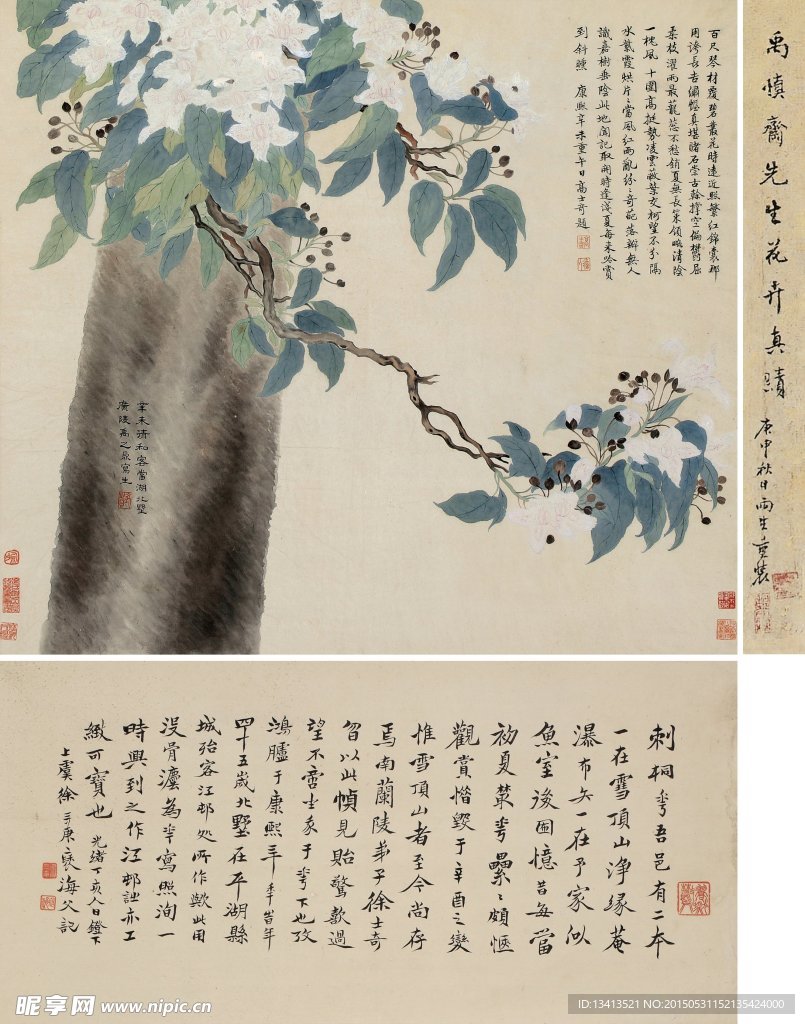 百尺琴材覆碧叢花時遠近照繁紅錦裹那
用誇長吉繡壁真堪賭石崇古幹撐空偏鬱屈
柔枝濯雨最蘢葱不愁銷夏無長策領畧清陰
一枕風 十圍高挺勢凌雲蔽葉交柯望不分隔
水蒸霞烘片片當風紅雨亂紛紛奇葩落瓣無人
識嘉樹垂陰此地聞記取開時逢淺夏每来吟賞
到斜曛 康熙辛未重午日高士奇題
辛未清和客當湖北墅
廣陵禹之鼎寫生
禹慎齋先生花卉真蹟
庚申秋日雨生重裝
刺桐華吾邑有二本
一在雪頂山浄緣菴
瀑布矢一在予家似
魚室後圃憶昔每當
初夏叢華纍纍頗愜
觀賞惜毀于辛酉之變
惟雪頂山者至今尚存
焉南蘭陵弟子徐士奇
曾以此幀見貽驚歎過
望不啻坐我于華下也攷
鴻臚于康熙三年 年
四十五歲北墅在平湖縣
城殆客江邨處所作歟此用
没骨瀍為華寫照洵一
時興到之作江邨詩亦工
緻可寶也 光緒丁亥人日鐙下
上虞徐三庚褎海父記
昵享网 www.nipic.cn
ID:13413521 NO:20150531152135424000